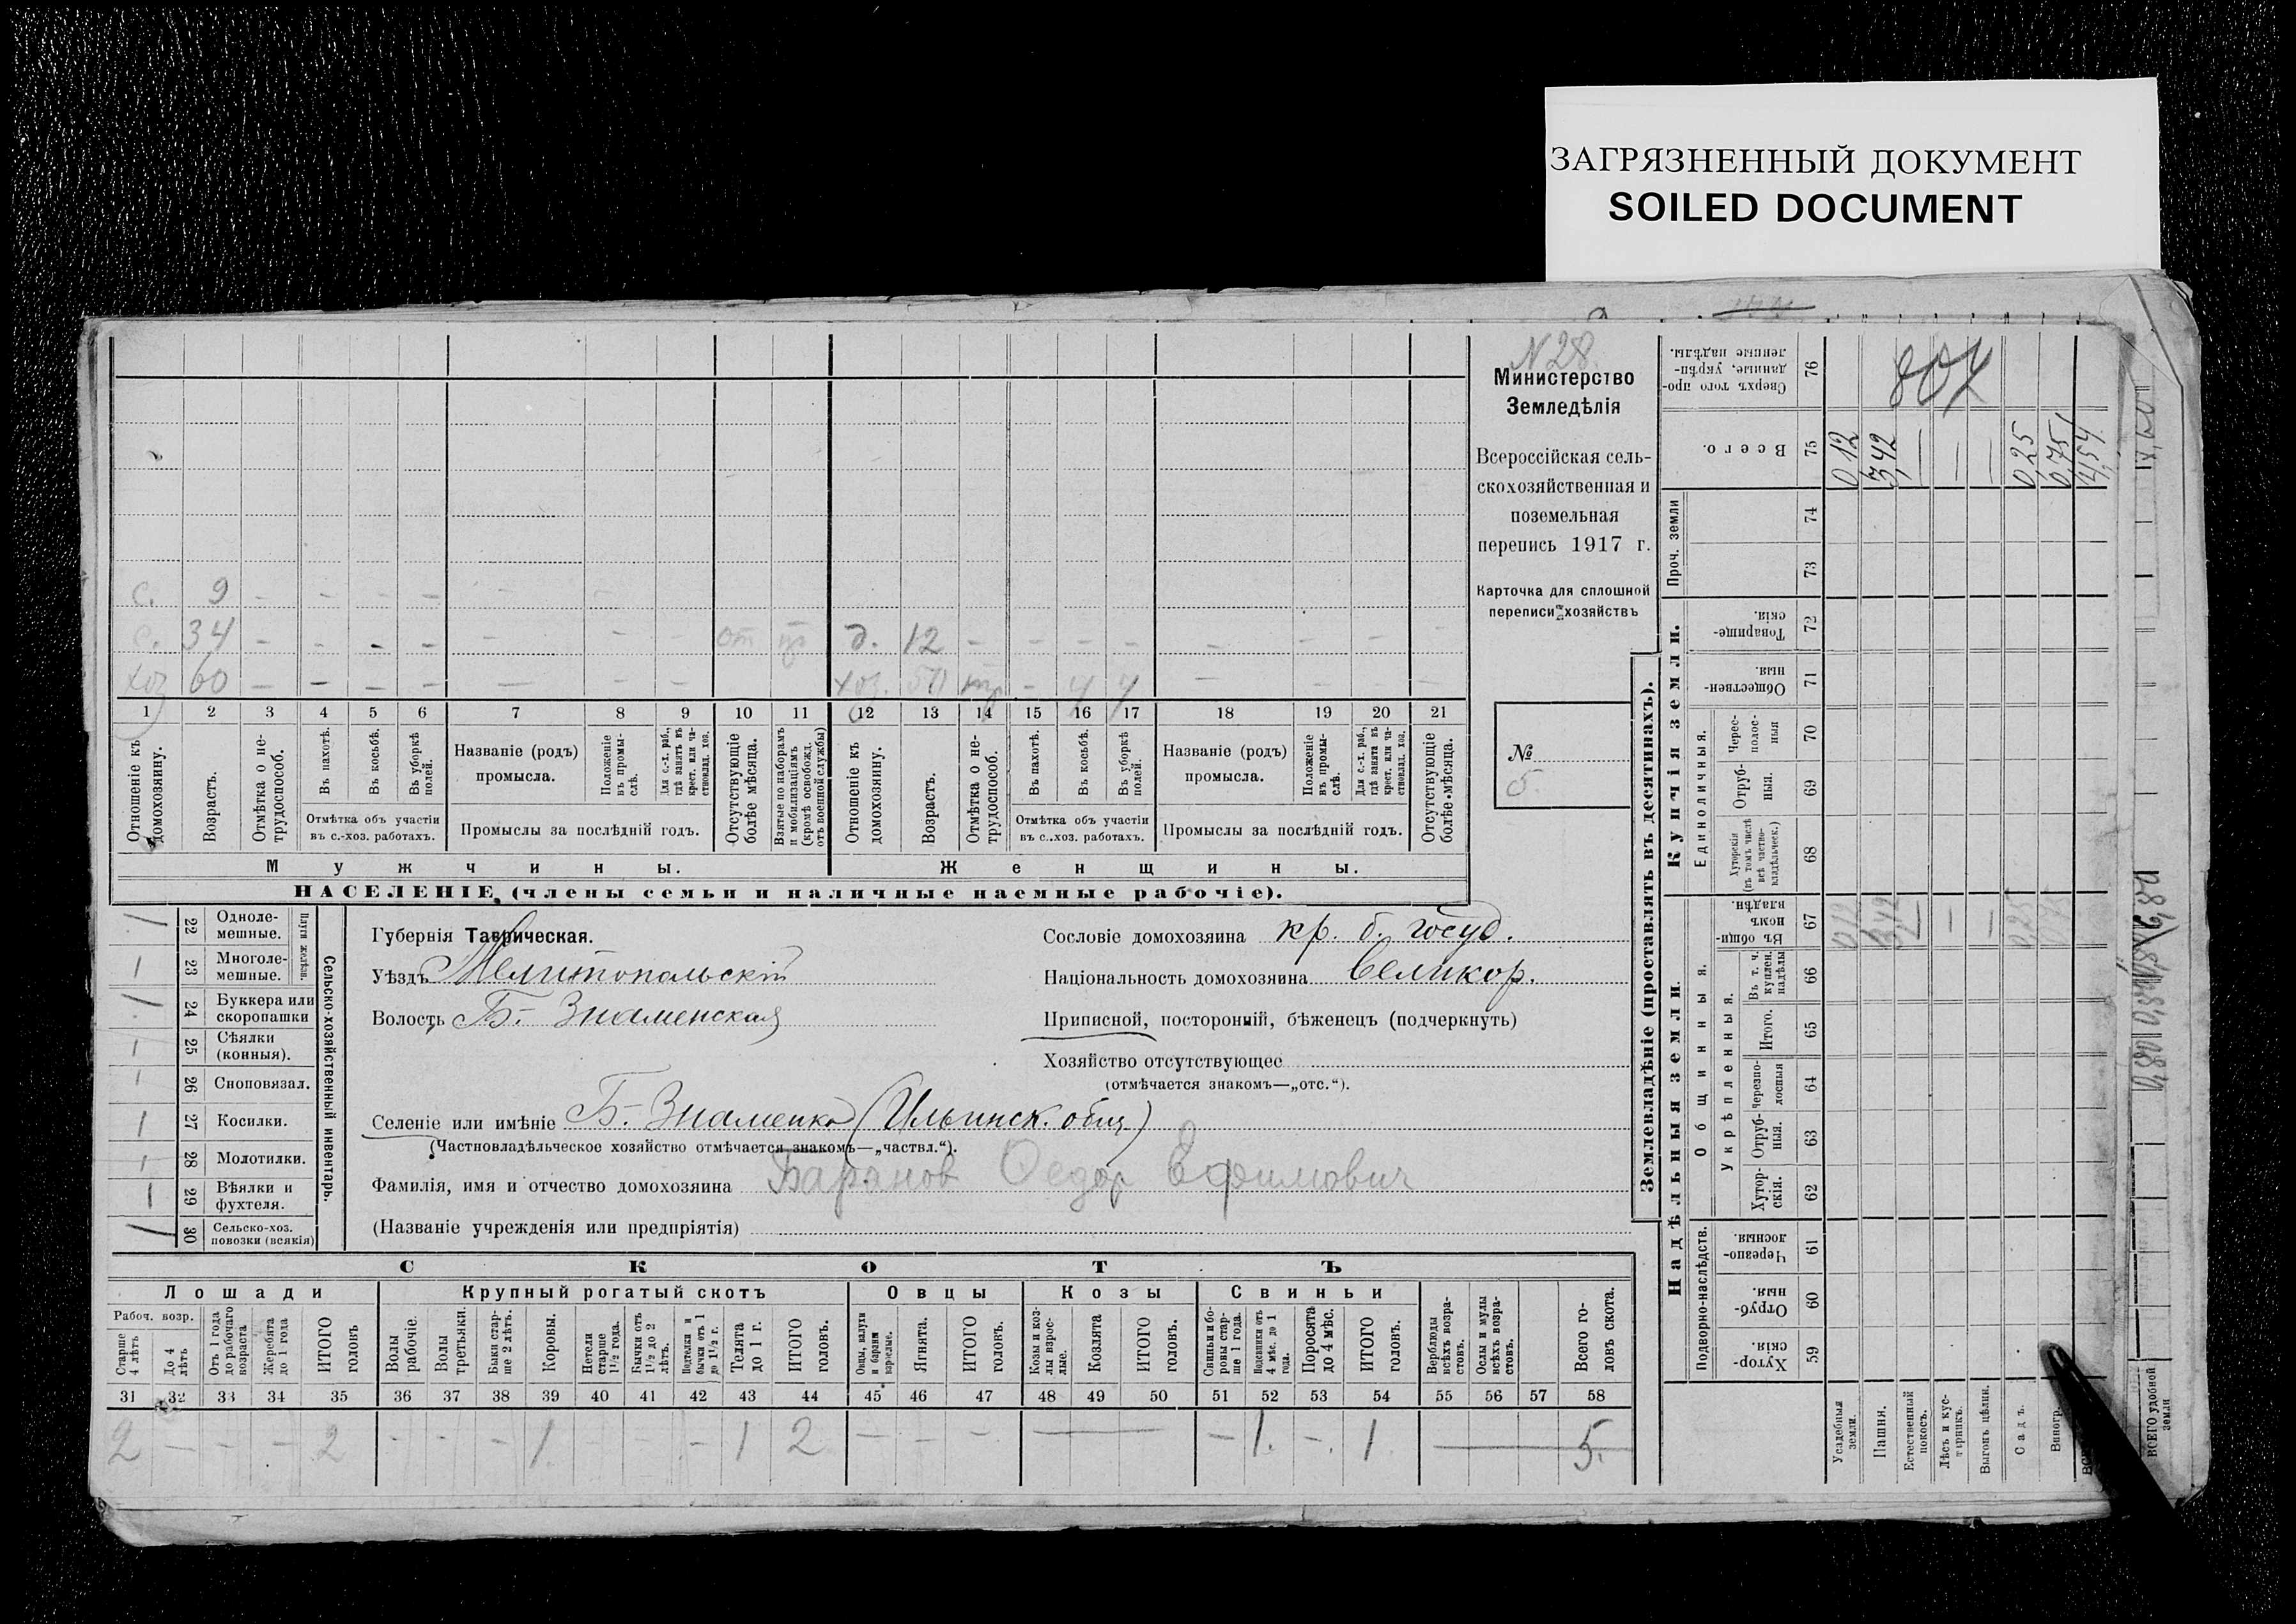 ЗАГРЯЗНЕННЫЙ ДОКУМЕНТ
SOILED DOCUMENT
N 28.
Министерство
Земледѣлія
Всероссійская сель-
скохозяйственная и
поземельная
перепись 1917 г.
Карточка для сплошной
переписи хозяйствъ
№
5.
с. 9 – – – – – –
с. 34 – – – – – – – от д. 12 – – – – – – – –
хоз 60 – – – – – – – хоз. – – – –
1 2 3 4 5 6 7 8 9 10 11 12 13 14 15 16 17 18 19 20 21
Отношеніе къ домохозяину.
Возрастъ.
Отмѣтка о не-трудоспособ.
Въ пахотѣ.
Въ косьбѣ.
Въ уборкѣ полей.
Отмѣтка объ участіи въ с.-хоз. работахъ.
Названіе (родъ) промысла.
Положеніе въ промы-слѣ.
Для с.-х. раб., гдѣ занятъ въ крест. или ча-стновлад. хоз.
Промыслы за послѣдній годъ.
Отсутствующіе болѣе мѣсяца.
Взятые по наборамъ и мобилизаціямъ (кромѣ освобожд. отъ военной службы)
Отношеніе къ домохозяину.
Возрастъ.
Отмѣтка о не-трудоспособ.
Въ пахотѣ.
Въ косьбѣ.
Въ уборкѣ полей.
Отмѣтка объ участіи въ с.-хоз. работахъ.
Названіе (родъ) промысла.
Положеніе въ промы-слѣ.
Для с.-х. раб., гдѣ занята въ крест. или ча-стновлад. хоз.
Промыслы за послѣдній годъ.
Отсутствующіе болѣе мѣсяца.
Мужчины. Женщины.
НАСЕЛЕНІЕ (члены семьи и наличные наемные рабочіе).
Сельско-хозяйственный инвентарь.
Плуги желѣзн.
22 Одноле-мешные.
23 Многоле-мешные.
24 Буккера или скоропашки
25 Сѣялки (конныя).
26 Сноповязал.
27 Косилки.
28 Молотилки.
29 Вѣялки и фухтеля.
30 Сельско-хоз. повозки (всякія)
Губернія Таврическая.
Уѣздъ Мелитопольскій
Волость Б- Знаменская
Сословіе домохозяина кр. б. госуд.
Національность домохозяина великор.
Приписной, посторонній, бѣженецъ (подчеркнуть)
Хозяйство отсутствующее
(отмѣчается знакомъ—„отс.“).
Селеніе или имѣніе Б- Знаменка (Ильинск. общ)
(Частновладѣльческое хозяйство отмѣчается знакомъ—„частвл.“).
Фамилія, имя и отчество домохозяина Баранов Федор Ефимович
(Названіе учрежденія или предпріятія)
СКОТЪ
Лошади Крупный рогатый скотъ Овцы Козы Свиньи
Рабоч. возр.
Старше 4 лѣтъ
До 4 лѣтъ
Отъ 1 года до рабочаго возраста
Жеребята до 1 года
ИТОГО головъ
Волы рабочіе.
Волы третьяки.
Быки стар-ше 2 лѣтъ.
Коровы.
Нетели старше 1½ года.
Бычки отъ 1½ до 2 лѣтъ.
Подтелки и бычки отъ 1 до 1½ г.
Телята до 1 г.
ИТОГО головъ.
Овцы, валухи и бараны взрослые.
Ягнята.
ИТОГО головъ.
Козы и коз-лы взрос-лые.
Козлята
ИТОГО головъ.
Свиньи и бо-ровы стар-ше 1 года.
Подсвинки отъ 4 мѣс. до 1 года.
Поросята до 4 мѣс.
ИТОГО головъ.
Верблюды всѣхъ возра-стовъ.
Ослы и мулы всѣхъ возра-стовъ.
Всего го-ловъ скота.
31 32 33 34 35 36 37 38 39 40 41 42 43 44 45 46 47 48 49 50 51 52 53 54 55 56 57 58
2 – – – 2 – – – 1 – – – 1 2 – – – — – 1. – 1 — 5.
Землевладѣніе (проставлять въ десятинахъ).
Надѣльныя земли. Купчія земли.
Проч. земли
Подворно-наслѣдств.
Общинныя.
Укрѣпленныя.
Единоличныя.
Хутор-скія. 59
Отруб-ныя. 60
Черезпо-лосныя. 61
Хутор-скія. 62
Отруб-ныя. 63
Черезпо-лосныя 64
Итого. 65
Въ т. ч. куплен. надѣлы 66
Въ общин-номъ владѣн. 67
Хуторскія (въ томъ числѣ всѣ частно-владѣльческ.) 68
Отруб-ныя. 69
Черес-полос-ныя 70
Обществен-ныя. 71
Товарище-скія. 72
73
74
Всего. 75
Сверхъ того про-данные, укрѣп-ленные надѣлы. 76
807
Усадебныя земли. 0,12 0,12
Пашня. 3,42 3,42
Естественный покосъ. — —
Лѣсъ и кус-тарникъ. — —
Выгонъ цѣлин. — —
Садъ. 0,25 0,25
Виногр. 0,75 0,75
4,54
ВСЕГО удобной земли